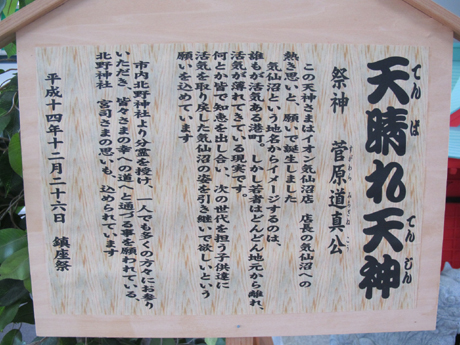 天晴れ天神
てんぱれてんじん
祭神 菅原道真公
この天神さまはイオン気仙沼店 店長の気仙沼への
熱き思いと、願いで誕生しました
気仙沼という地名からイメージするのは、
誰もが活気ある港町。しかし若者はどんどん地元から離れ、
活気が薄れてきている現実です。
何とか皆で知恵を出し合い、次の世代を担う子供達に
活気を取り戻した気仙沼の姿を引き継いで欲しいという
願いを込めています
市内北野神社より分霊を授け、一人でも多くの方々にお参り
いただき、皆々さまの幸への道へと通づる事を願われている、
北野神社 宮司さまの思いも、込められています
平成十四年十二月二十六日 鎮座祭